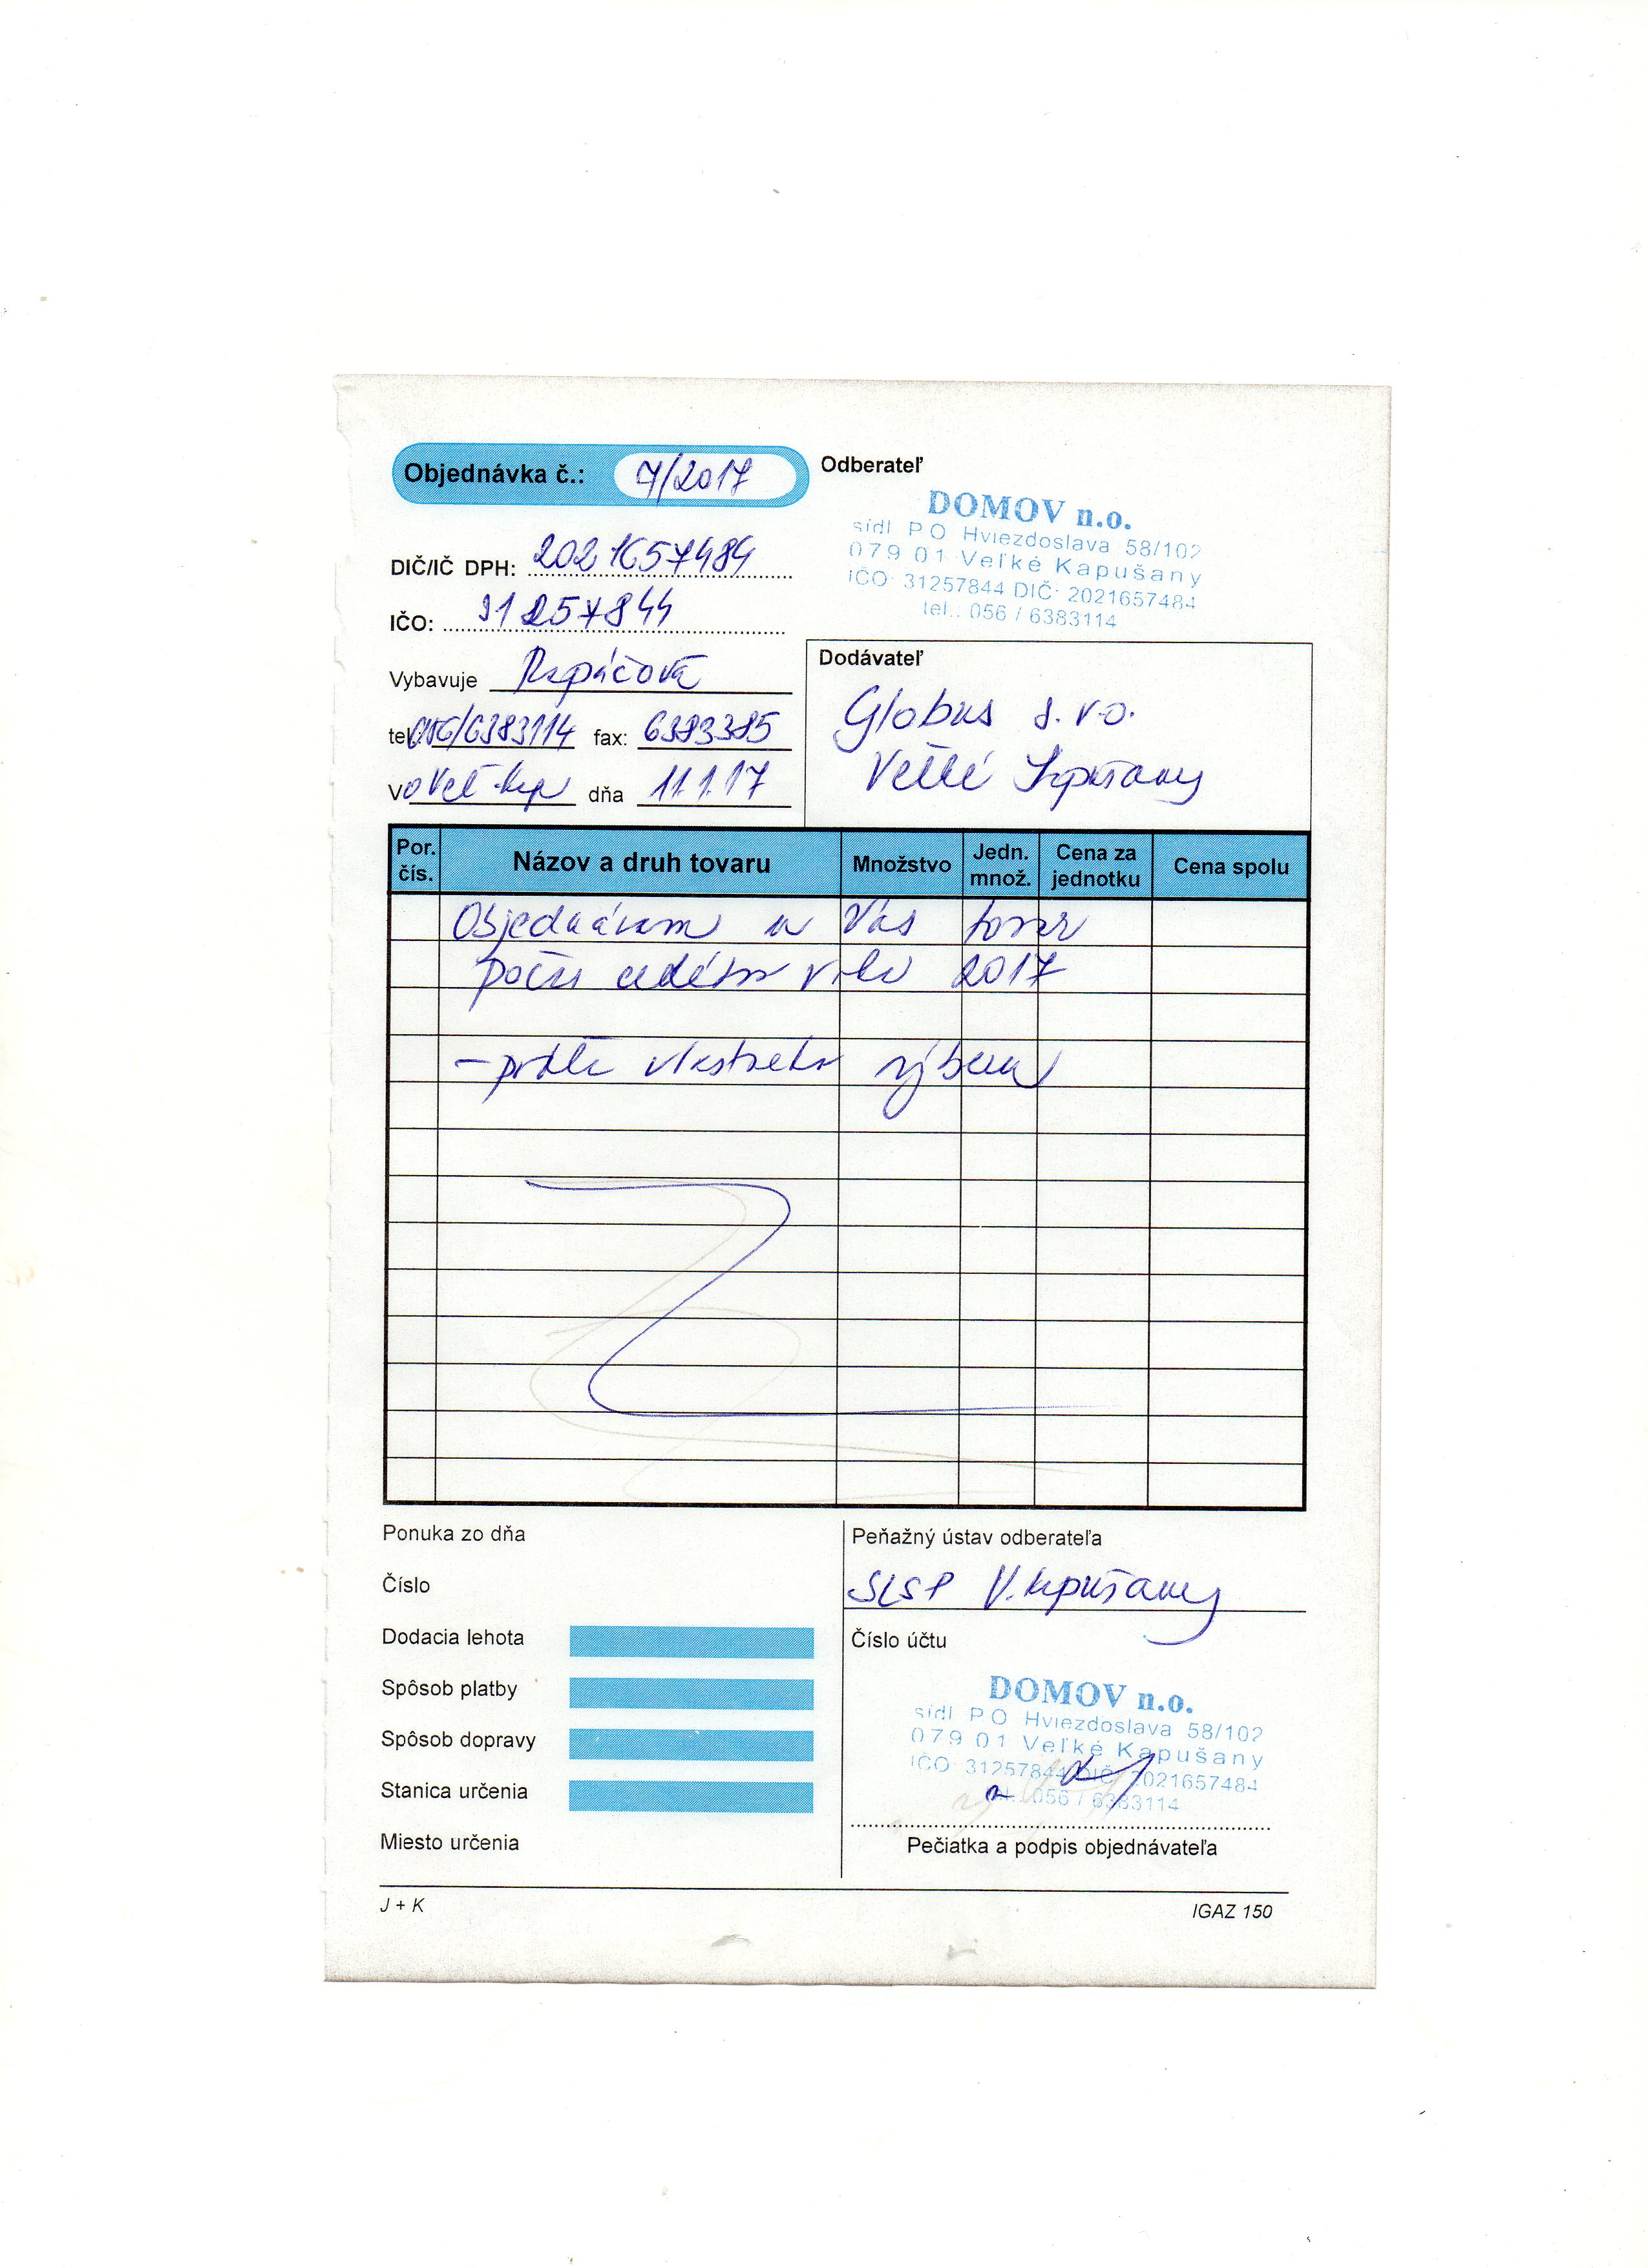 Objednávka č.: 7/2017
Odberateľ
DOMOV n.o.
sídl PO Hviezdoslava 58/102
079 01 Veľké Kapušany
IČO: 31257844 DIČ: 2021657484
tel.: 056 / 6383114
DIČ/IČ DPH: 2021657484
IČO: 31257844
Vybavuje Repáčová
tel. 056/6383114 fax: 6383385
Vo Veľ. Kap dňa 11.1.17
Dodávateľ
Globus s.r.o.
Veľké Kapušany
Por. čís. Názov a druh tovaru Množstvo Jedn. množ. Cena za jednotku Cena spolu
Objednávam u Vás tovar
počas celého roku 2017
- podľa vlastného výberu
Ponuka zo dňa
Číslo
Dodacia lehota
Spôsob platby
Spôsob dopravy
Stanica určenia
Miesto určenia
Peňažný ústav odberateľa
SLSP V. Kapušany
Číslo účtu
DOMOV n.o.
sídl PO Hviezdoslava 58/102
079 01 Veľké Kapušany
IČO: 31257844 DIČ: 2021657484
tel.: 056 / 6383114
Pečiatka a podpis objednávateľa
J + K
IGAZ 150